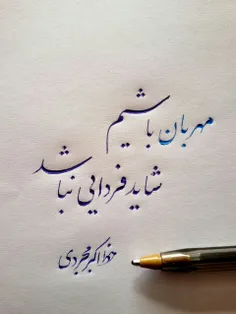 مهربان باشیم
شاید فردایی نباشد
خط اکبر مجردی